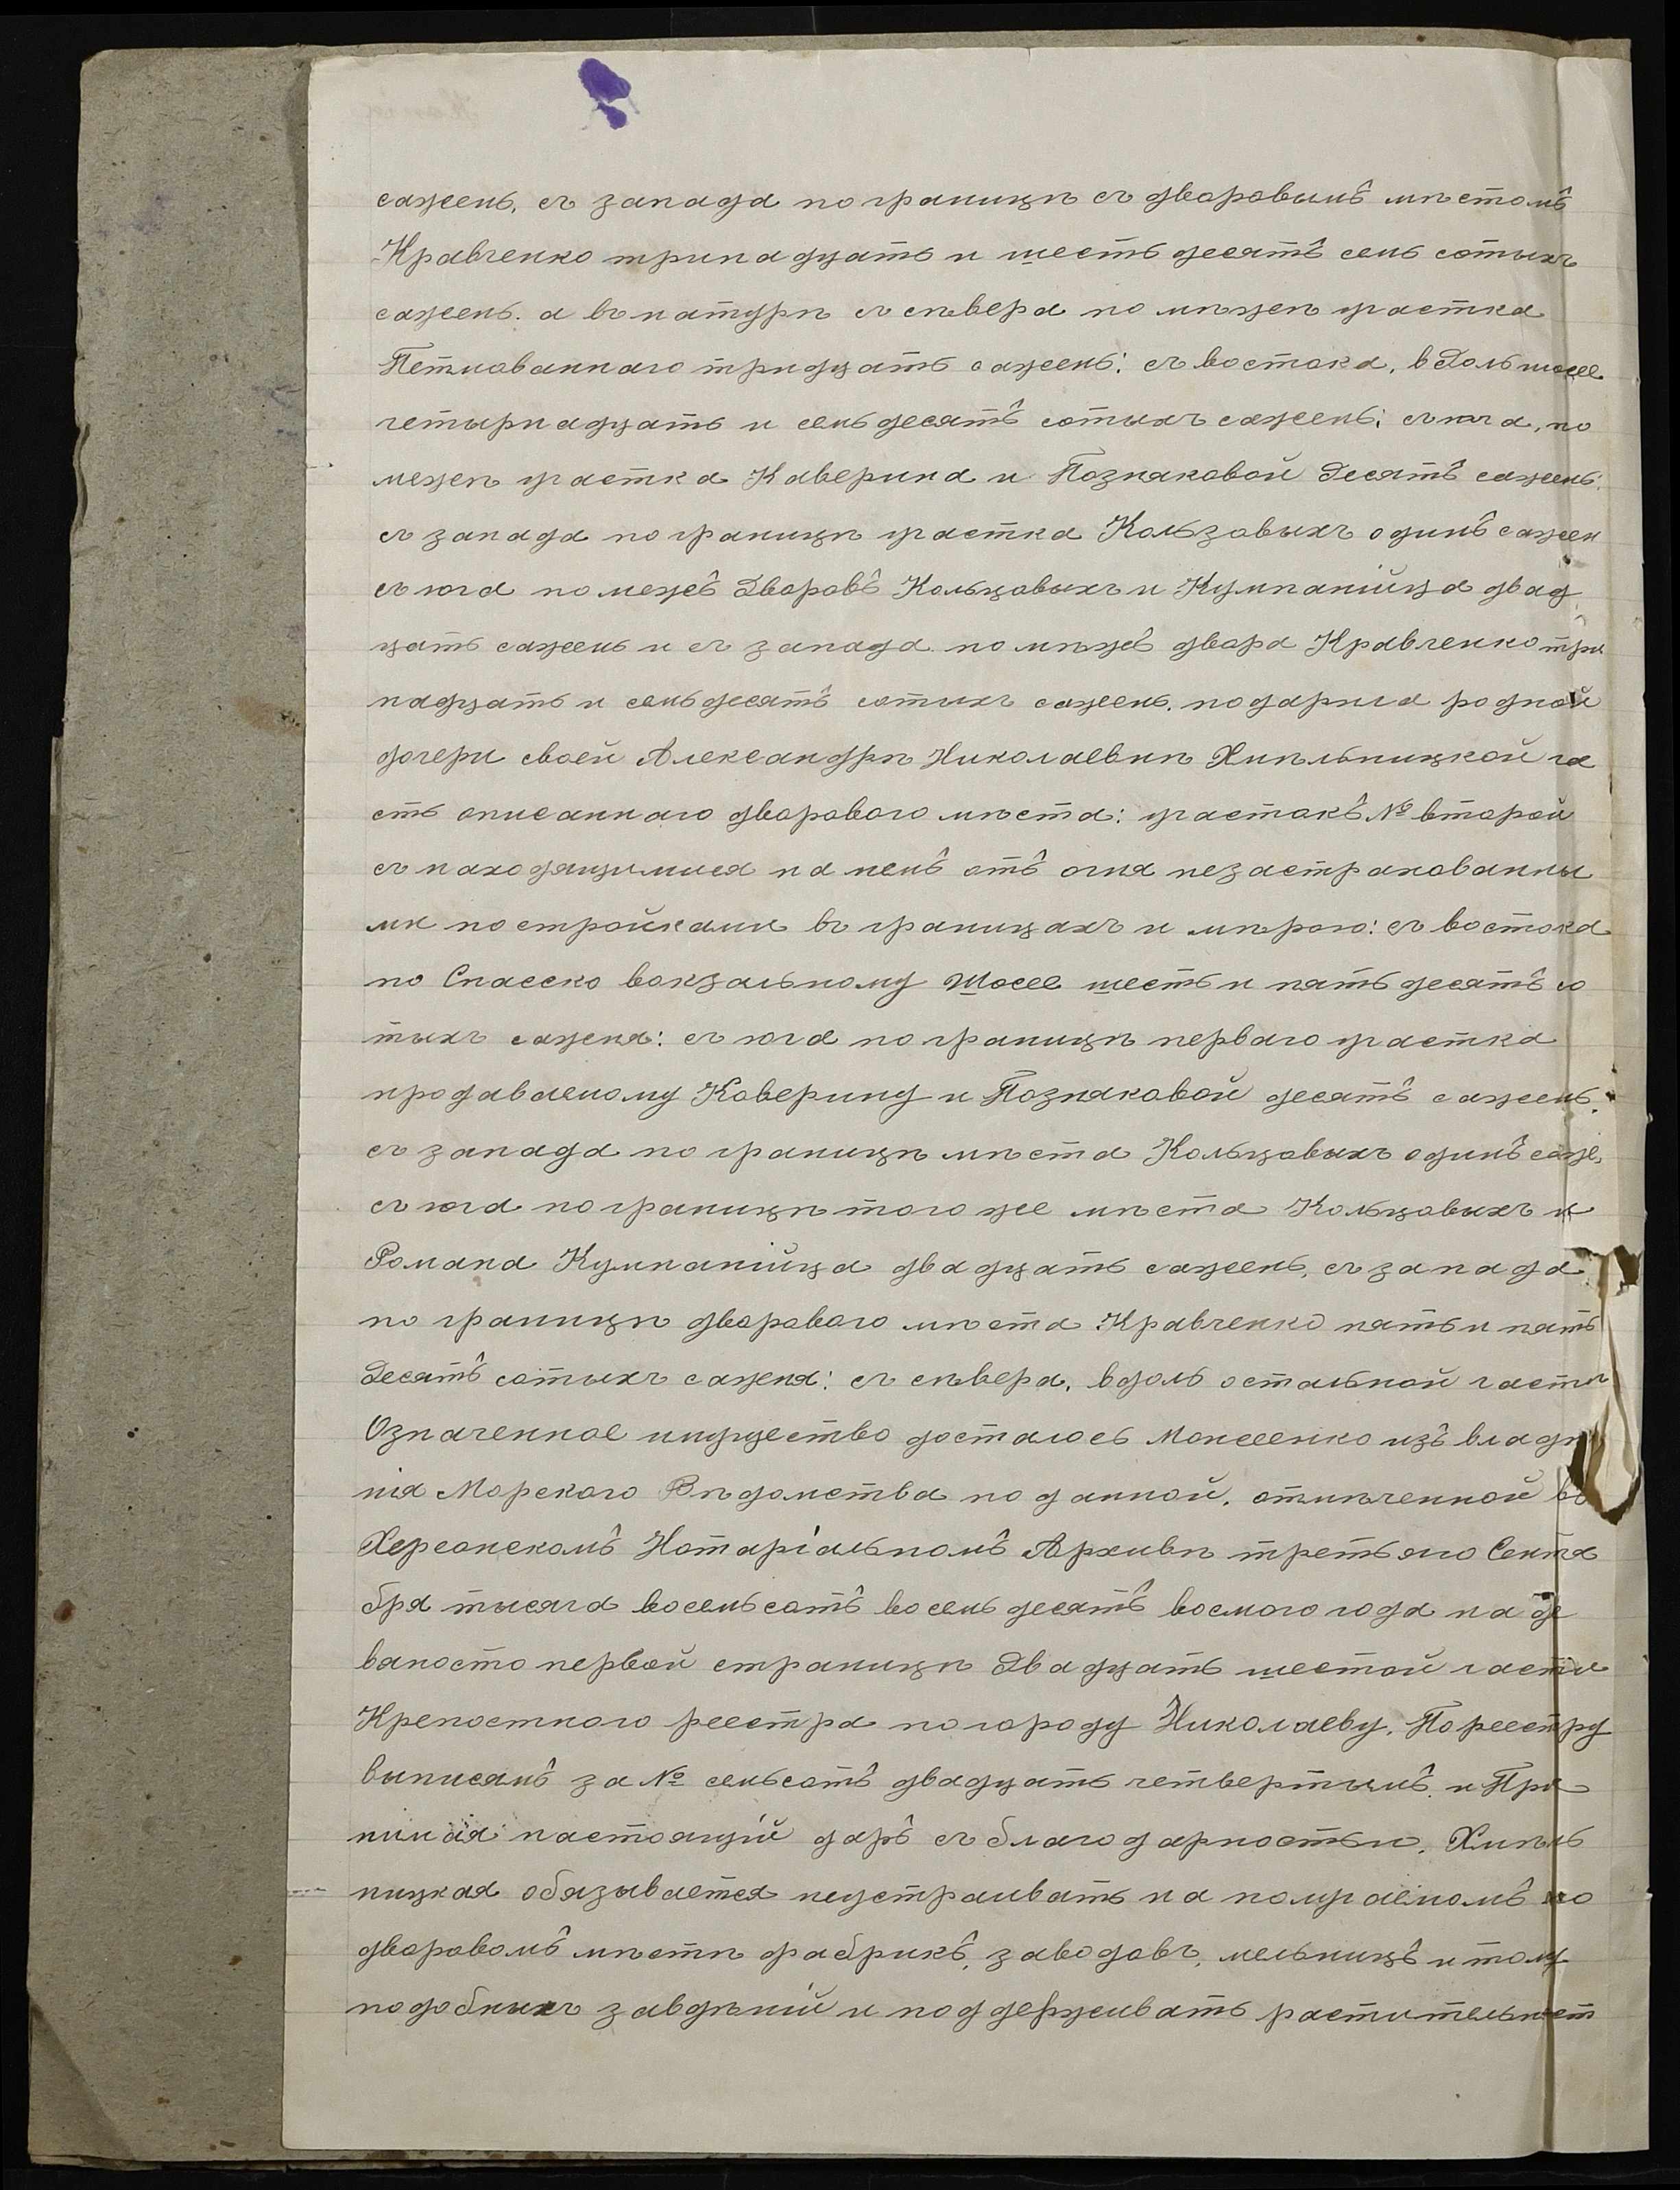 сажень, съ запада по границѣ съ дворовымъ мѣстомъ
Кравченко тринадцать и шестьдесятъ семь сотыхъ
сажень. а въ натурѣ съ сѣвера по мѣжѣ участка
Петлюваннаго тридцать сажень: съ востока, вДоль шоссе
четырнадцать и семьдесятъ сотыхъ сажень; съ юга, по
межѣ участка Каверина и Позняковой Десять сажень:
съ запада по границѣ участка Кользовыхъ одинъ сажен
съ юга по межѣ Дворовъ Кольцовыхъ и Кумпанійца двад
цать сажень и съ запада по мѣжѣ двора Кравченко три
надцать и семьдесятъ сотыхъ сажень. подарила родной
дочери своей Александрѣ Николаевнѣ Хмѣльницкой ча
сть описаннаго дворового мѣста: участокъ № второй
съ находящимися на немъ отъ огня незастрахованны
ми постройками въ границахъ и мѣрою: съ востока
по Спасско вокзальному Шоссе шесть и пятьдесятъ со
тыхъ саженя: съ юга по границѣ перваго участка
продаваемому Каверину и Позняковой десять сажень,
съ запада по границѣ мѣста Кольцовыхъ одинъ саже,
съ юга по границѣ того же мѣста Кольцовыхъ и
Романа Кумпанійца двадцать сажень, съ запада
по границѣ дворового мѣста Кравченко пять и пять
Десятъ сотыхъ саженя: съ сѣвера, вдоль остальной части
Означенное имущество досталось Моисеенко изъ владѣ
нія Морского Вѣдомства по данной, отмѣченной въ
Херсонскомъ Нотаріальномъ Архивѣ третьяго Сентя
бря тысяча восемьсотъ восемьдесятъ восмого года на де
вяносто первой страницѣ Двадцать шестой части
Крепостного реестра по городу Николаеву, По реестру
выписямъ за № семьсотъ двадцать четвертымъ. и При
нимая настоящій даръ съ благодарностью, Хмѣль
ницкая обязывается неустраивать на получаемомъ ею
дворовомъ мѣстѣ фабрикъ, заводовъ, мельницъ и тому
подобныхъ завдѣній и поддерживать растительност